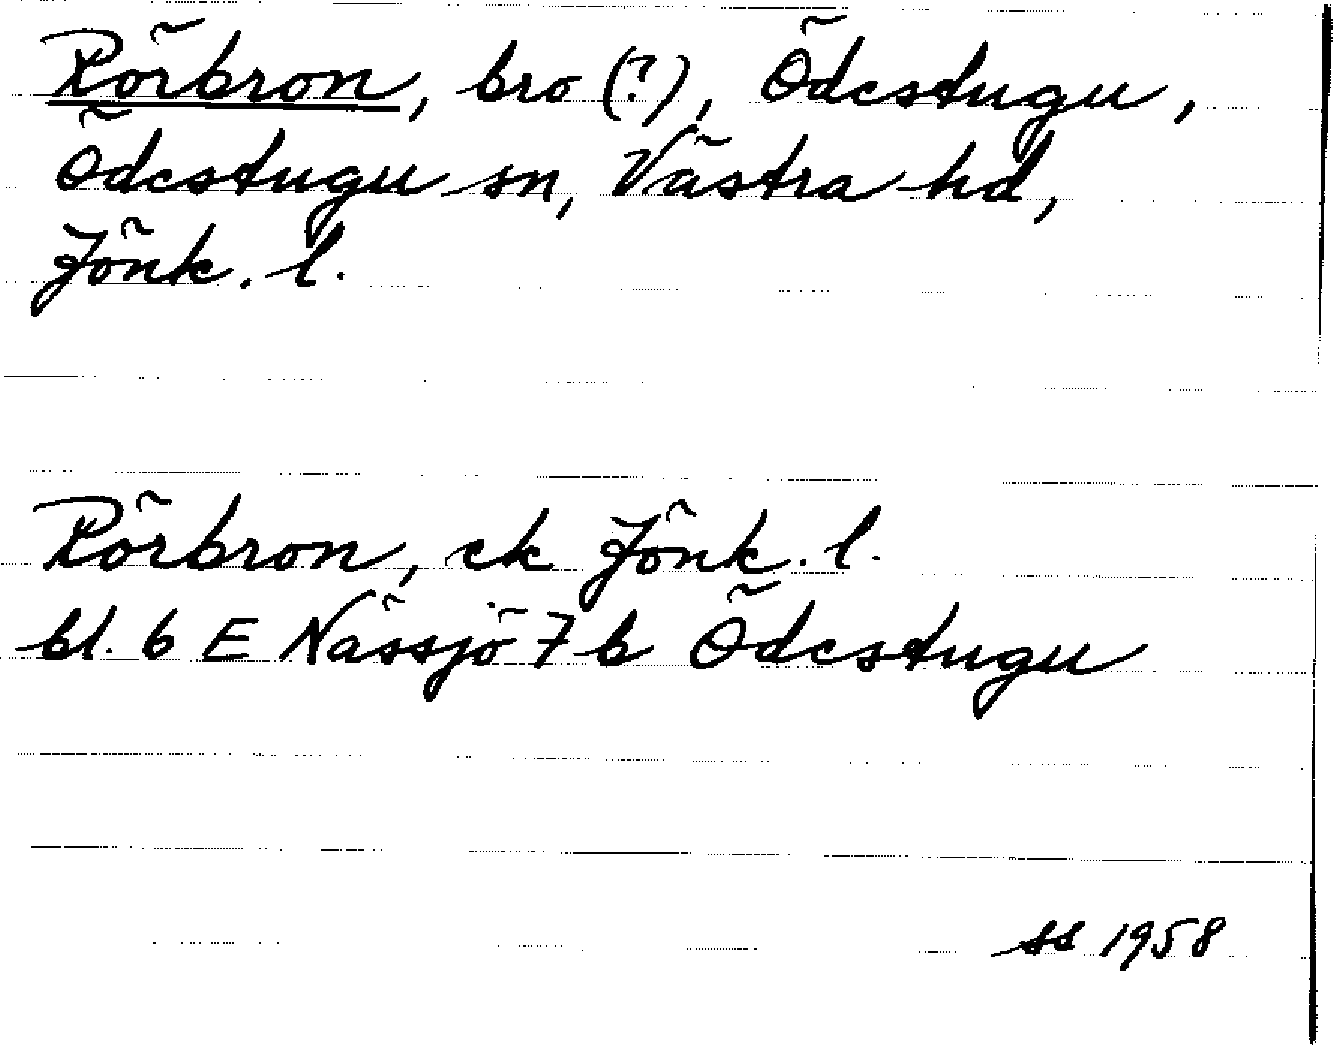 Rörbron, bro (?), Ödestugu,
Ödestugu sn, Västra hd,
Jönk. l.
Rörbron, ek Jönk. l.
bl. 6 E Nässjö 7 b Ödestugu
SS 1958